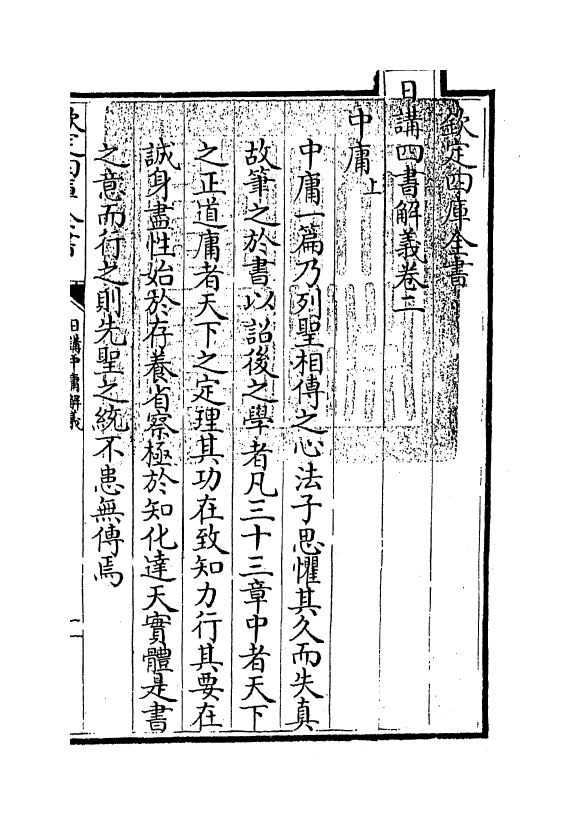 欽定四庫全書
日講四書解義卷二
中庸上
中庸一篇乃列聖相傳之心法子思懼其久而失真
故筆之於書以詔後之學者凡三十三章中者天下
之正道庸者天下之定理其功在致知力行其要在
誠身盡性始於存養省察極於知化達天實體是書
之意而行之則先聖之統不患無傳焉
欽定四庫全書
日講中庸解義
一